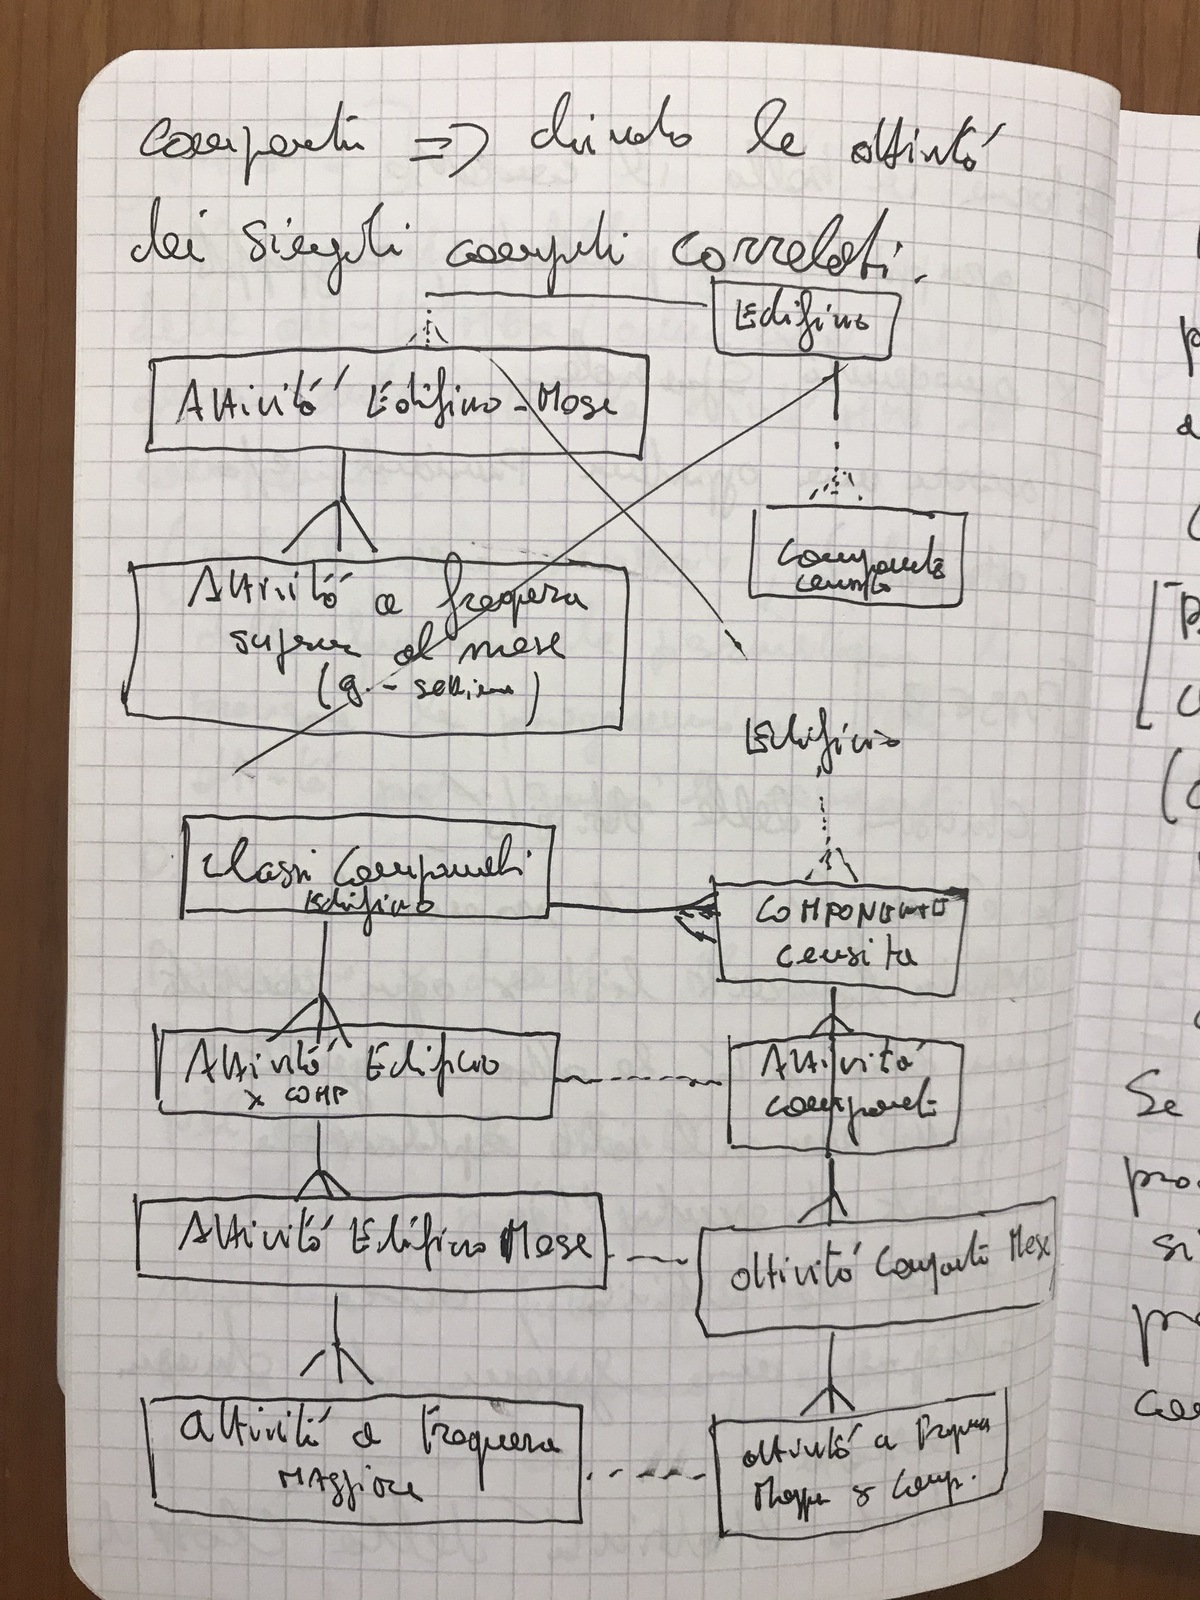 componenti => chiudo le attività
dei singoli compiti correlati.
Edificio
Attività Edificio - Mese
Componente
censito
Attività a frequenza
super al mese
(g. - settim)
Edificio
Classi Componenti
Edificio
COMPONENTE
censita
Attività Edificio
x COMP
Attività
componenti
Attività Edificio Mese
attività Componenti Mese
attività a Frequenza
MAGGiore
attività a Frequenza
Magg x Comp.
p
a
(
Se
si